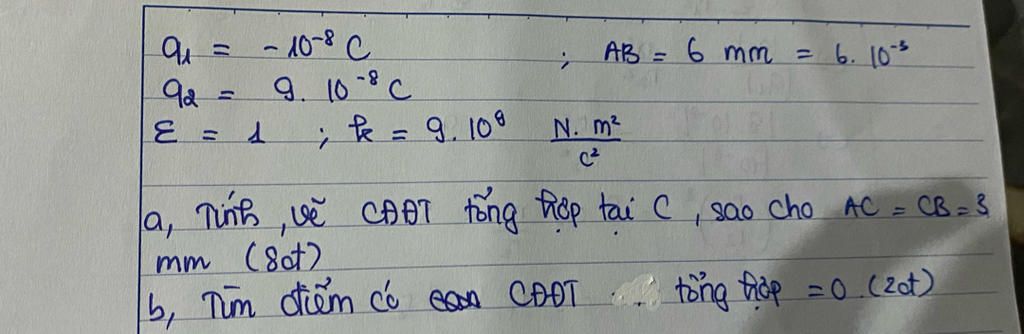 q₁ = - 10⁻⁸ C ; AB = 6 mm = 6. 10⁻³
q₂ = 9. 10⁻⁸ C
ε = 1 ; k = 9.10⁹ N.m²/C²
a, Tính, vẽ CĐĐT tổng hợp tại C, sao cho AC = CB = 3
mm (8đ)
b, Tìm điểm có CĐĐT tổng hợp = 0 (2đ)